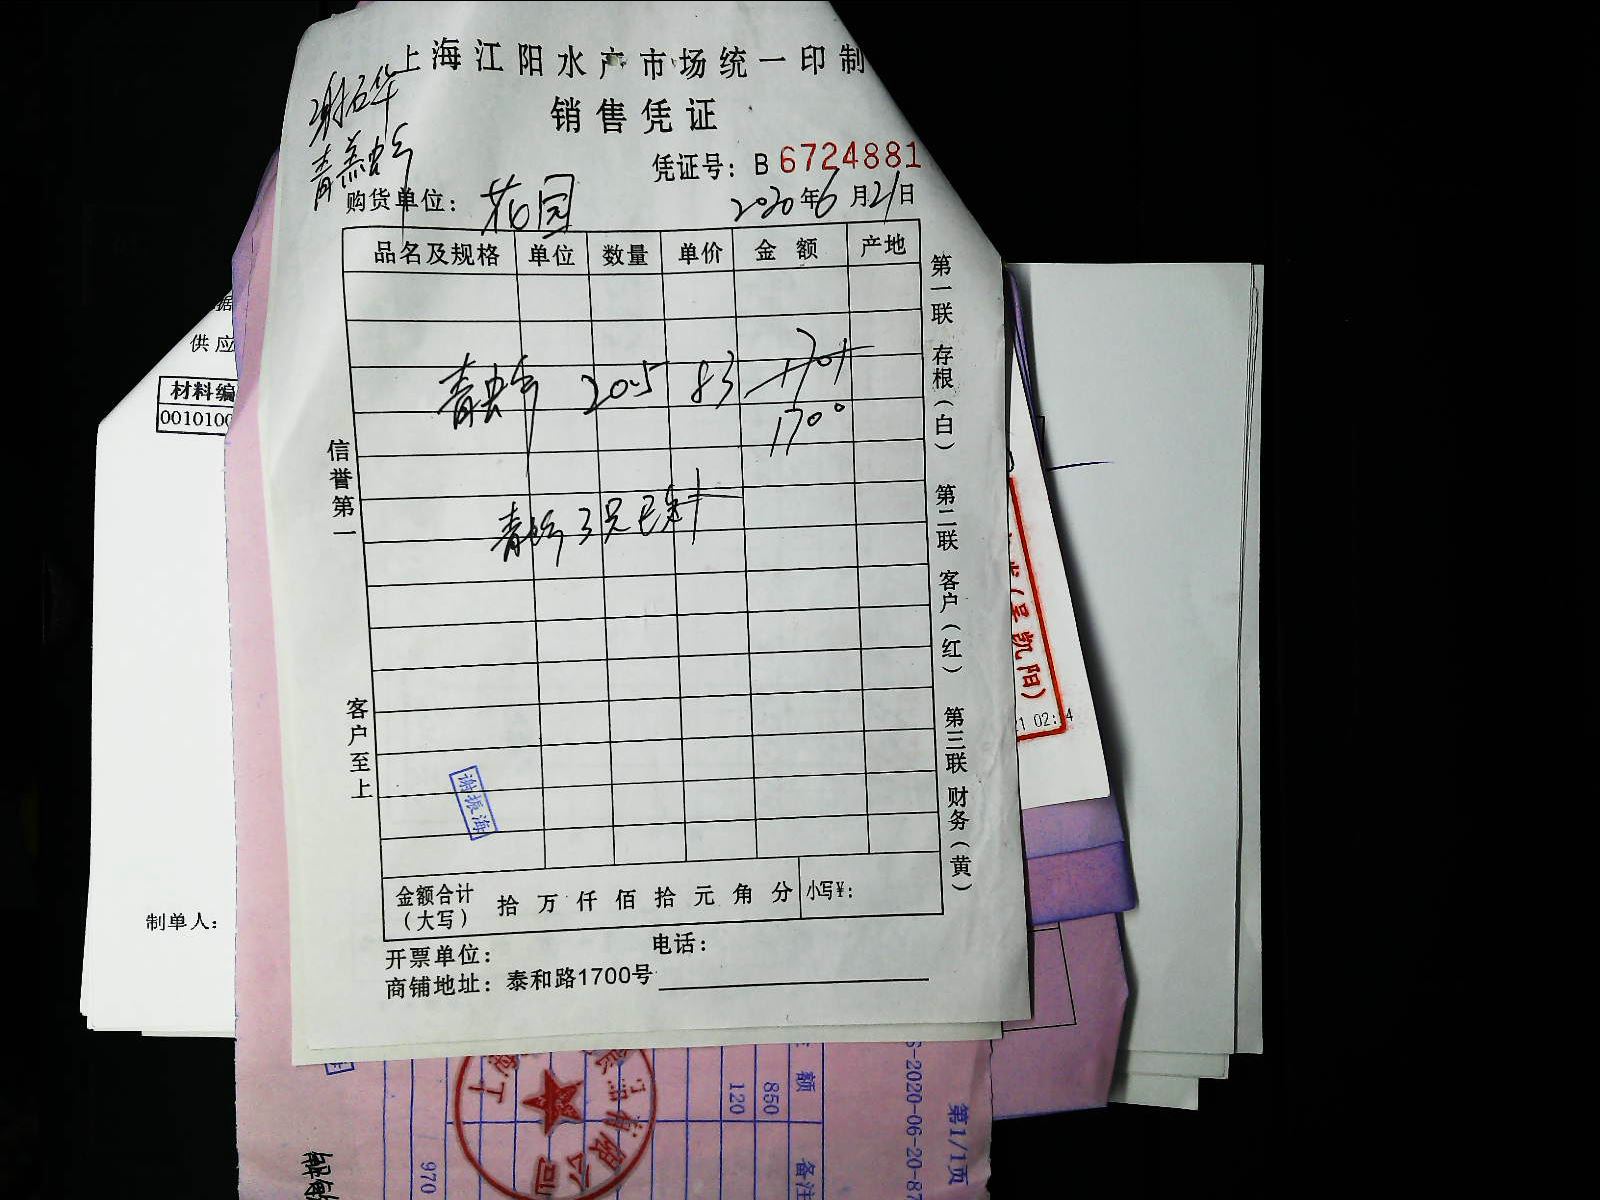 上海江阳水产市场统一印制
销售凭证
凭证号：B 6724881
购货单位：花园
2020年6月21日
品名及规格 单位 数量 单价 金额 产地
青虾 20.5 83 1701
1700
青虾3只已
信誉第一
客户至上
第一联 存根（白） 第二联 客户（红） 第三联 财务（黄）
谢振海
金额合计（大写） 拾 万 仟 佰 拾 元 角 分 小写¥：
开票单位： 电话：
商铺地址：泰和路1700号
供应
材料编
0010100
制单人：
（吴凯阳）
额
850
120
备注
970
-2020-06-20-87
第1/1页
有限公司